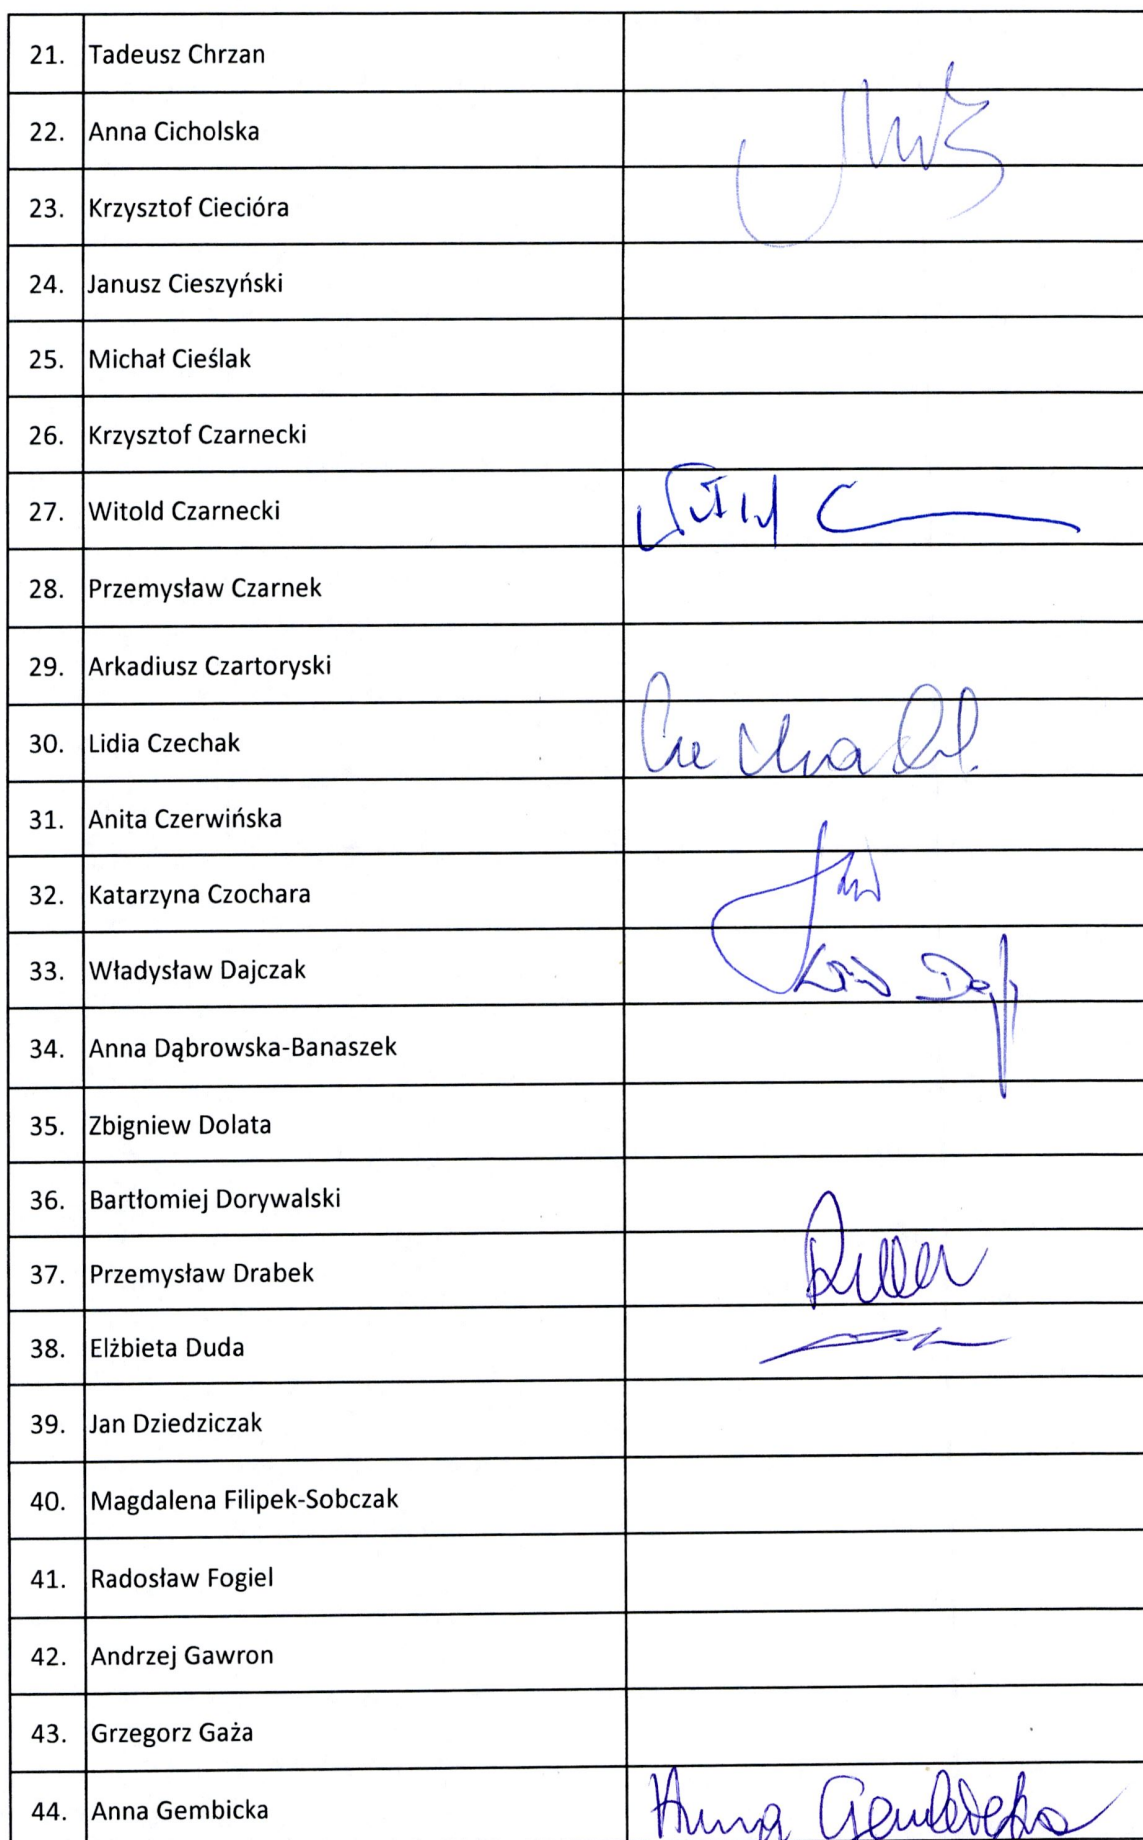 21. Tadeusz Chrzan
22. Anna Cicholska
23. Krzysztof Ciecióra
24. Janusz Cieszyński
25. Michał Cieślak
26. Krzysztof Czarnecki
27. Witold Czarnecki
28. Przemysław Czarnek
29. Arkadiusz Czartoryski
30. Lidia Czechak
31. Anita Czerwińska
32. Katarzyna Czochara
33. Władysław Dajczak
34. Anna Dąbrowska-Banaszek
35. Zbigniew Dolata
36. Bartłomiej Dorywalski
37. Przemysław Drabek
38. Elżbieta Duda
39. Jan Dziedziczak
40. Magdalena Filipek-Sobczak
41. Radosław Fogiel
42. Andrzej Gawron
43. Grzegorz Gaża
44. Anna Gembicka Anna Gembicka